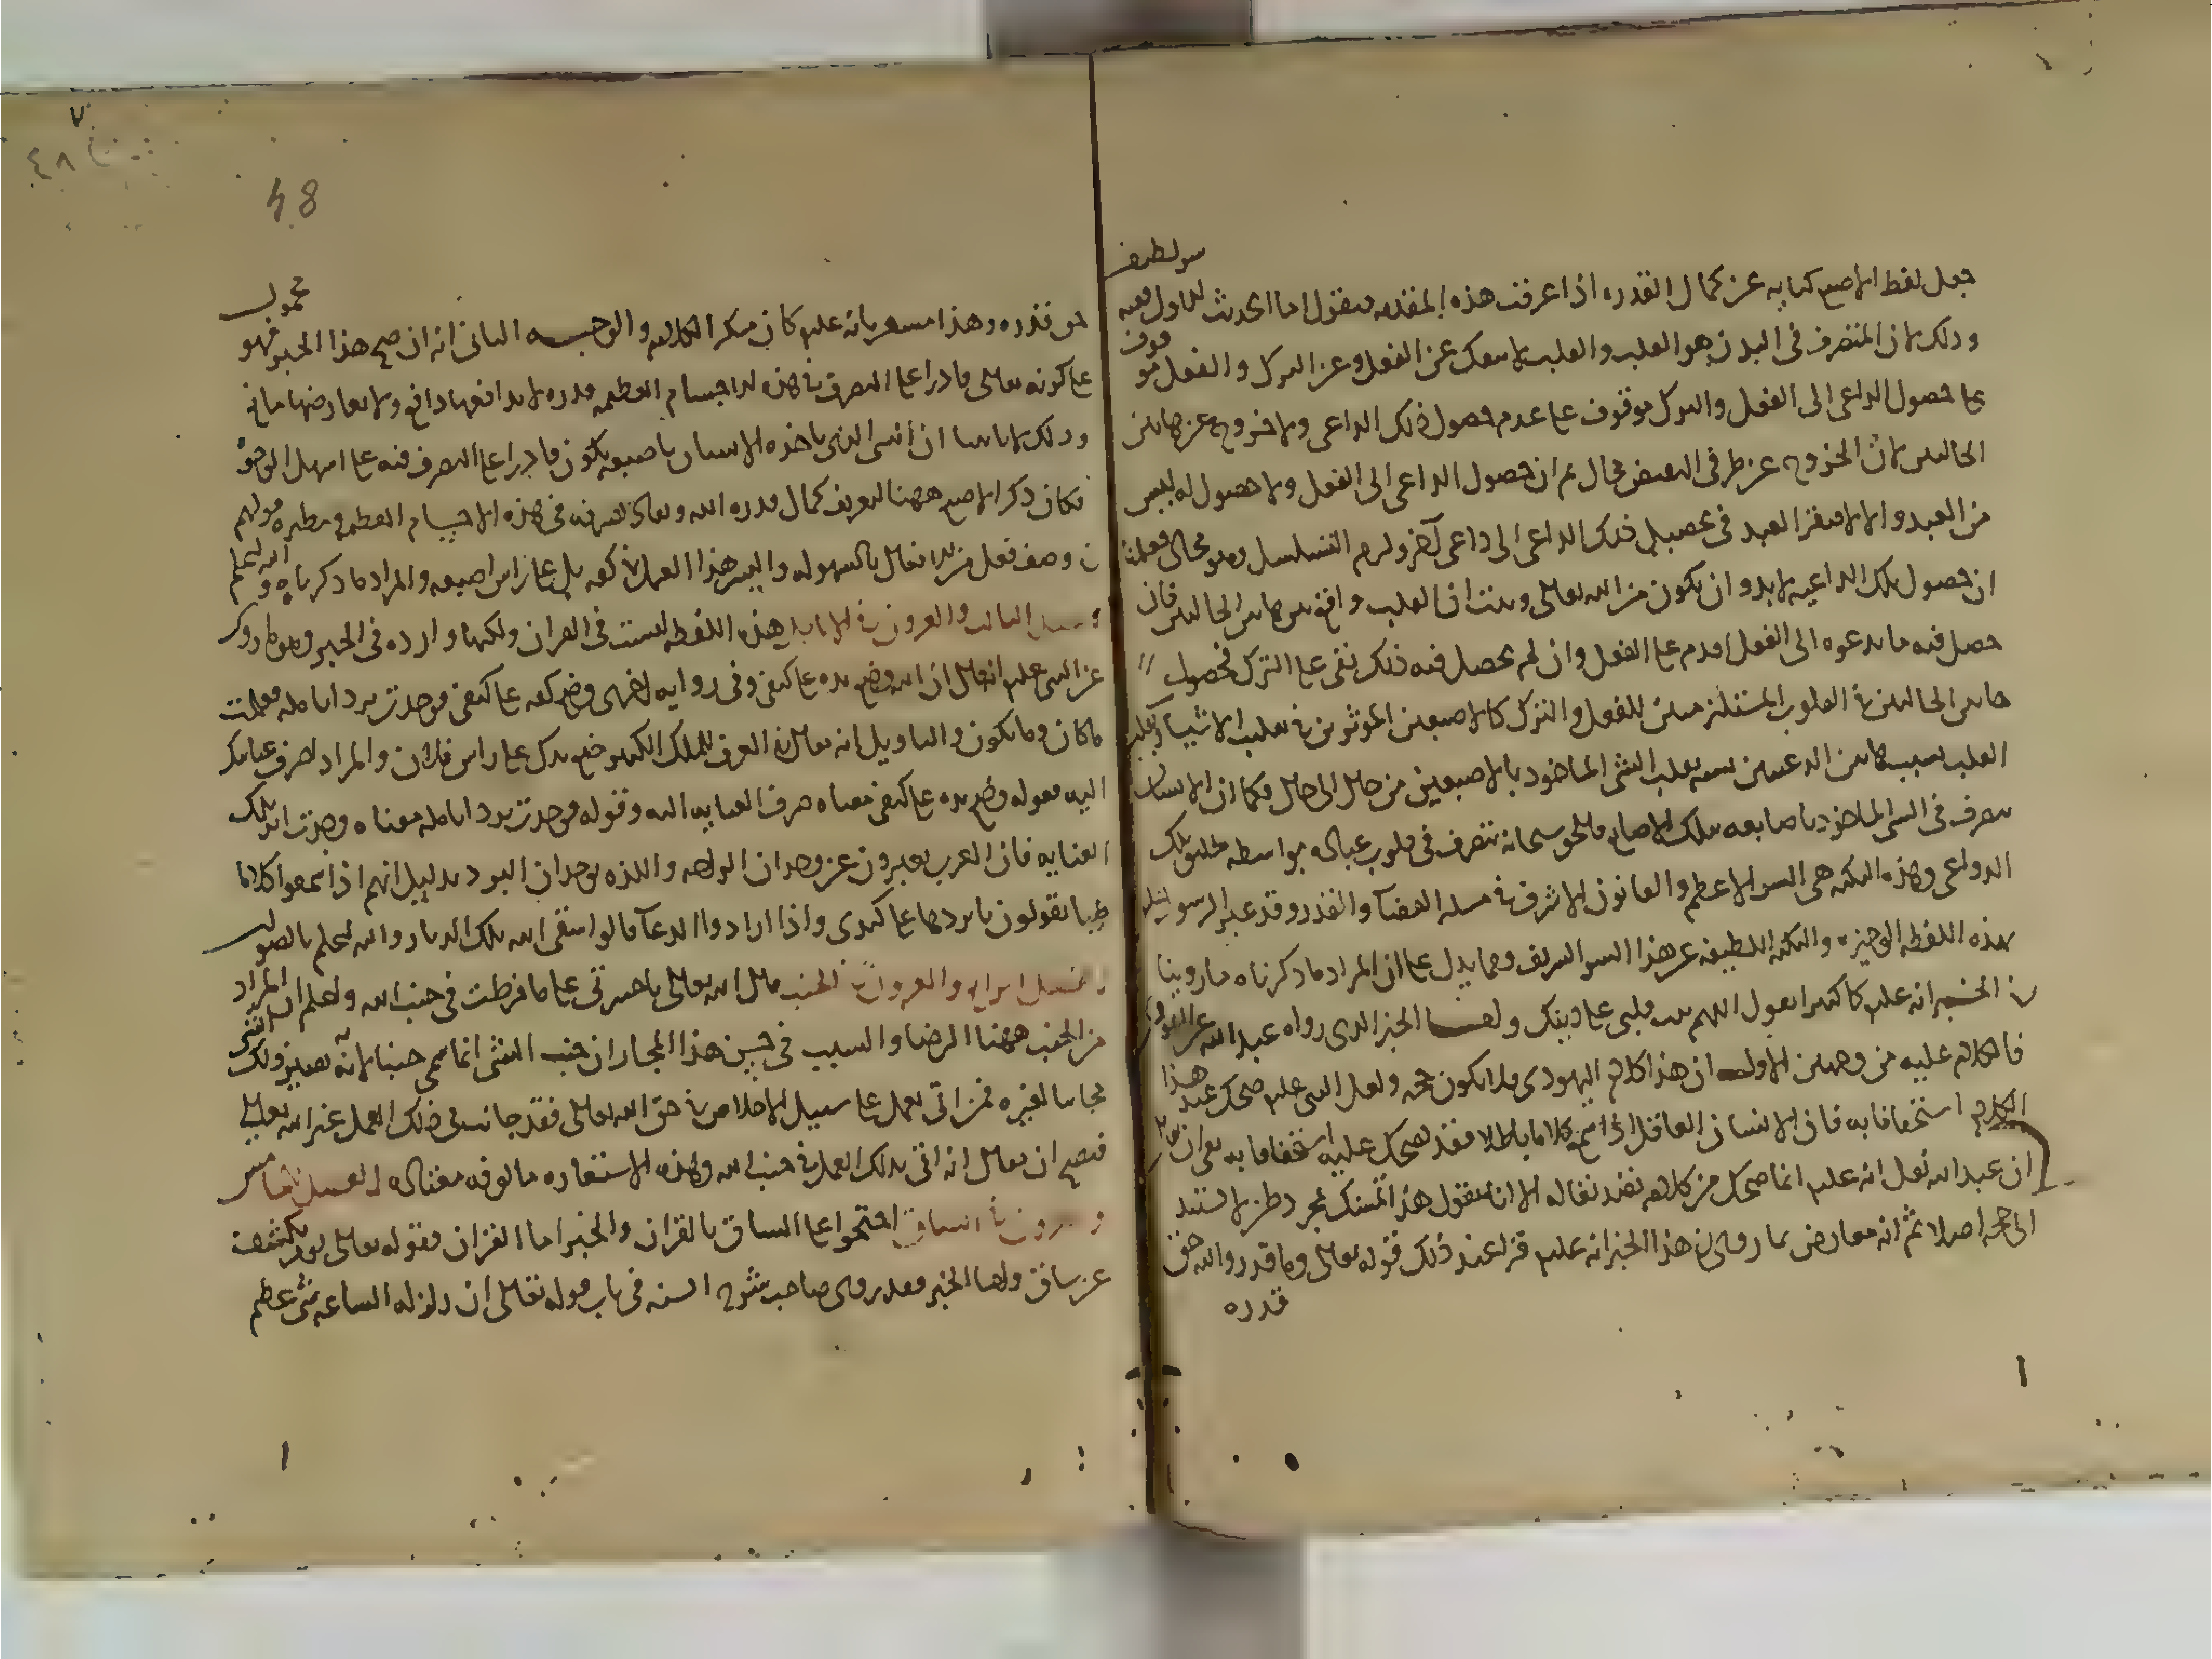 سر لطيف
جعل لفظ الاصبع كنايه عن كمال القدره اذا عرفت هذه المقدمه فنقول اما الحديث الاول ففيه
وذلك لان المتصرف فى البدن هو القلب والقلب لا ينفك عن الفعل وعن الترك والفعل موقوف
على حصول الداعى الى الفعل والترك موقوف على عدم حصول ذلك الداعى ولا خروج عن هاتين
الحالتين لان الخروج عن طرفى النقيض محال ثم ان حصول الداعى الى الفعل ولا حصوله ليس
من العبد والا لافتقر العبد فى تحصيل ذلك الداعى الى داعى آخر ولزم التسلسل وهو محال فعلمنا
ان حصول تلك الداعيه لا بد وان يكون من الله تعالى وثبت ان القلب واقع بين هاتين الحالتين فان
حصل فيه ما يدعوه الى الفعل اقدم على الفعل وان لم يحصل فيه ذلك بقى على الترك فحصول
هاتين الحالتين فى القلوب المستلزمتين للفعل والترك كالاصبعين الموثرين فى تقليب الاشيا وتقليب
القلب بسبب هاتين الداعيتين يشبه تقلب الشى الماخوذ بالاصبعين من حال الى حال فكما ان الانسان
يتصرف فى الشى الماخوذ باصابعه بتلك الاصابع فالحق سبحانه يتصرف فى قلوب عباده بواسطه خلق تلك
الدواعى وهذه النكته هى السر الاعظم والقانون الاشرف فى مسله القضآ والقدر وقد عبر الرسول عليه
بهذه اللفظه الوجيزه والنكته اللطيفه عن هذا السر الشريف ومما يدل على ان المراد ما ذكرناه ما روينا
فى الخبر انه عليه كان كثيرا يقول اللهم ثبت قلبى على دينك واما الخبر الذى رواه عبد الله
فالكلام عليه من وجهين الاول ان هذا كلام اليهودى فلا يكون حجه ولعل النبى عليه ضحك عند هذا
الكلام استخفافا به فان الانسان العاقل اذا سمع كلاما باطلا فقد يضحك عليه استخفافا به بقى ان يقال
ان عبد الله نقل انه عليه انما ضحك من كلامه تصديقا له الا انا نقول هذا تمسك بمجرد ظن لا يستند
الى حجه اصلا ثم انه معارض بما روى فى هذا الخبر انه عليه قرا عند ذلك قوله تعالى وما قدروا الله حق
قدره
48
٤٨
حق قدره وهذا مشعر بانه عليه كان منكر الكلامه والوجه الثانى انه ان صح هذا الخبر فهو محمول
على كونه تعالى قادرا على التصرف فى هذه الاجسام العظيمه قدره لا يدافعها دافع ولا يعارضها مانع
وذلك لانا بينا ان الشى الذى ياخذه الانسان باصبعه يكون قادرا على التصرف فيه على اسهل الوجوه
فكان ذكر الاصبع ههنا لتعريف كمال قدره الله ونفاذ تصرفه فى هذه الاجسام العظيمه ونظيره قولهم
فى وصف فعل من الافعال بالسهوله واليسر هذا العمل فى كفه بل على راس اصبعه والمراد ما ذكرناه والله اعلم
الفصل الثالث والعشرون فى الانامل هذه اللفظه ليست فى القران ولكنها وارده فى الخبر وهو ما روى
عن النبى عليه انه قال ان الله وضع يده على كتفى وفى روايه اخرى وضع كفه على كتفى فوجدت برد انامله فعلمت
ما كان وما يكون والتاويل انه يقال فى العرف للملك الكبير ضع يدك على راس فلان والمراد اصرف عنايتك
اليه فقوله وضع يده على كتفى معناه صرف العنايه اليه وقوله فوجدت برد انامله معناه وجدت اثر تلك
العنايه فان العرب يعبرون عن وجدان الراحه واللذه بوجدان البرد بدليل انهم اذا سمعوا كلاما
طيبا يقولون يا بردها على كبدى واذا ارادوا الدعآ قالوا سقى الله تلك الديار والله اعلم بالصواب
الفصل الرابع والعشرون فى الجنب قال الله تعالى يا حسرتى على ما فرطت فى جنب الله واعلم ان المراد
من الجنب ههنا الرضا والسبب فى حسن هذا المجاز ان جنب الشى انما سمى جنبا لانه يصير ذلك الشى
مجانبا لغيره فمن اتى بعمل على سبيل الاخلاص فى حق الله تعالى فقد جانب فى ذلك العمل غير الله تعالى
فيصح ان يقال انه اتى بذلك العمل فى جنب الله وهذه الاستعاره مالوفه معتاده الفصل الخامس
والعشرون فى الساق احتجوا على الساق بالقران والخبر اما القران فقوله تعالى يوم يكشف
عن ساق واما الخبر فقد روى صاحب شرح السنه فى باب قوله تعالى ان زلزله الساعه شى عظيم